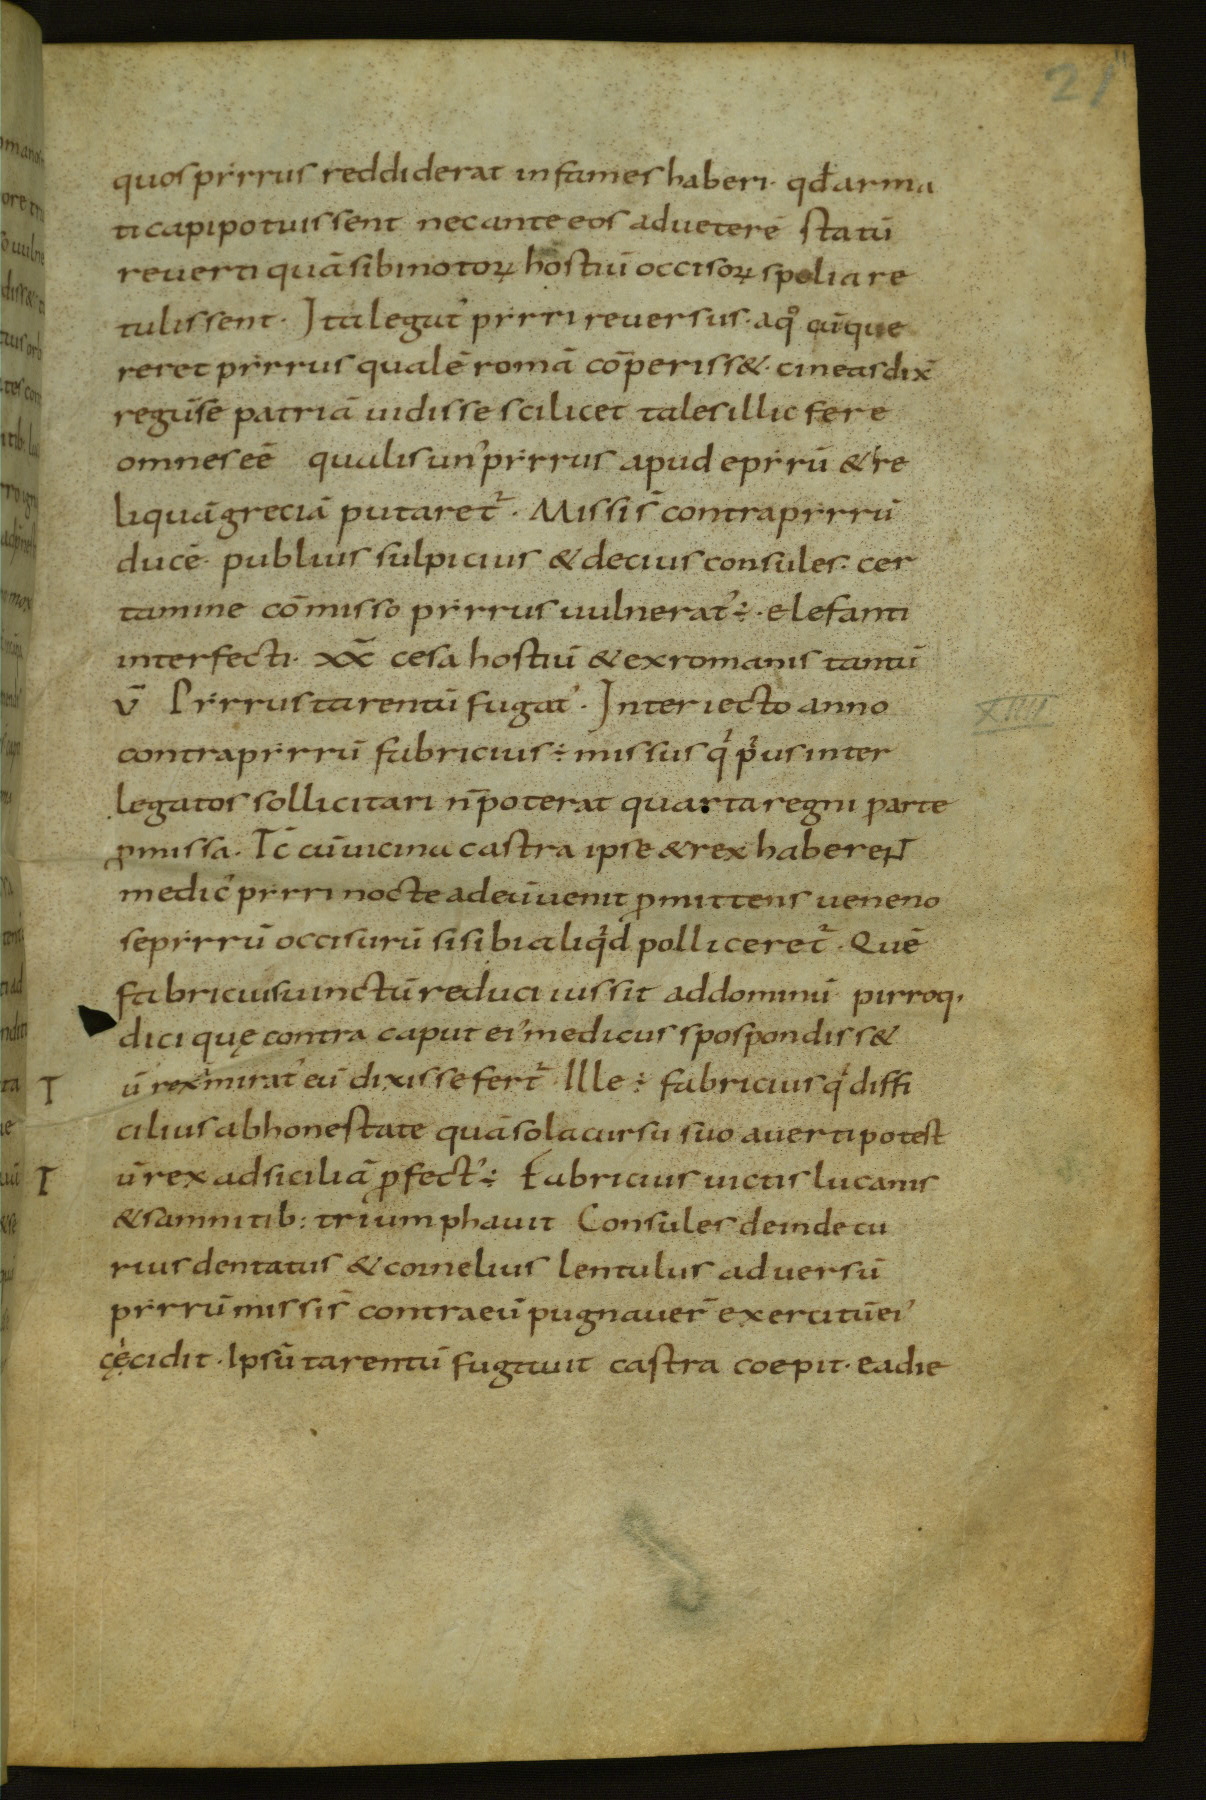 21
quos pẏrrus reddiderat infames haberi· qđ arma
ti capi potuissent nec ante eos ad ueterē statū
reuerti quā si bi notoꝝ hostiū occisoꝝ spolia re
tulissent· Ita legat᾽ pẏrri reuersus· a qͦ cū que
reret pẏrrus qualē romā cōperiss&· cineas dix̄
regū se patriā uidisse scilicet tales illic fere
omnes eē qualis un᾽ pẏrrus apud epẏrū & re
liquā greciā putaret᷑· Missis̄ contra pẏrrū
ducē· publius sulpicius & decius consules· cer
tamine cōmisso pẏrrus uulnerat᾽ ÷· elefanti
interfecti· xx̄ cesa hostiū & ex romanis tantū
v̄ Pẏrrus tarentū fugat᾽· Interiecto anno
contra pẏrrū fabricius ÷ missus qͥ pͥus inter
legatos sollicitari n̄ poterat quarta regni parte
ꝓmissa· Tc̄ cū uicina castra ipse & rex haberent
medic᾽ pẏrri nocte ad eū uenit ꝓmittens ueneno
se pẏrrū occisurū si sibi aliqͥd polliceret᷑· Quē
fabricius uinctū reduci iussit ad dominū pirroq·
dici quę contra caput ei᾽ medicus spospondiss&
T ū rex mirat᾽ eū dixisse fert᷑ Ille ÷ fabricius qͥ diffi
cilius ab honestate quā sol a cursu suo auerti potest
T ū rex ad siciliā ꝓfect᾽ ÷ Fabricius uictis lucanis
& samnitib: triumphauit Consules deinde cu
rius dentatus & cornelius lentulus aduersū
pẏrrū missis̄ contra eū pugnauer̄ exercitū ei᾽
cęcidit· Ipsū tarentū fugauit castra coepit· ea die
XIIII